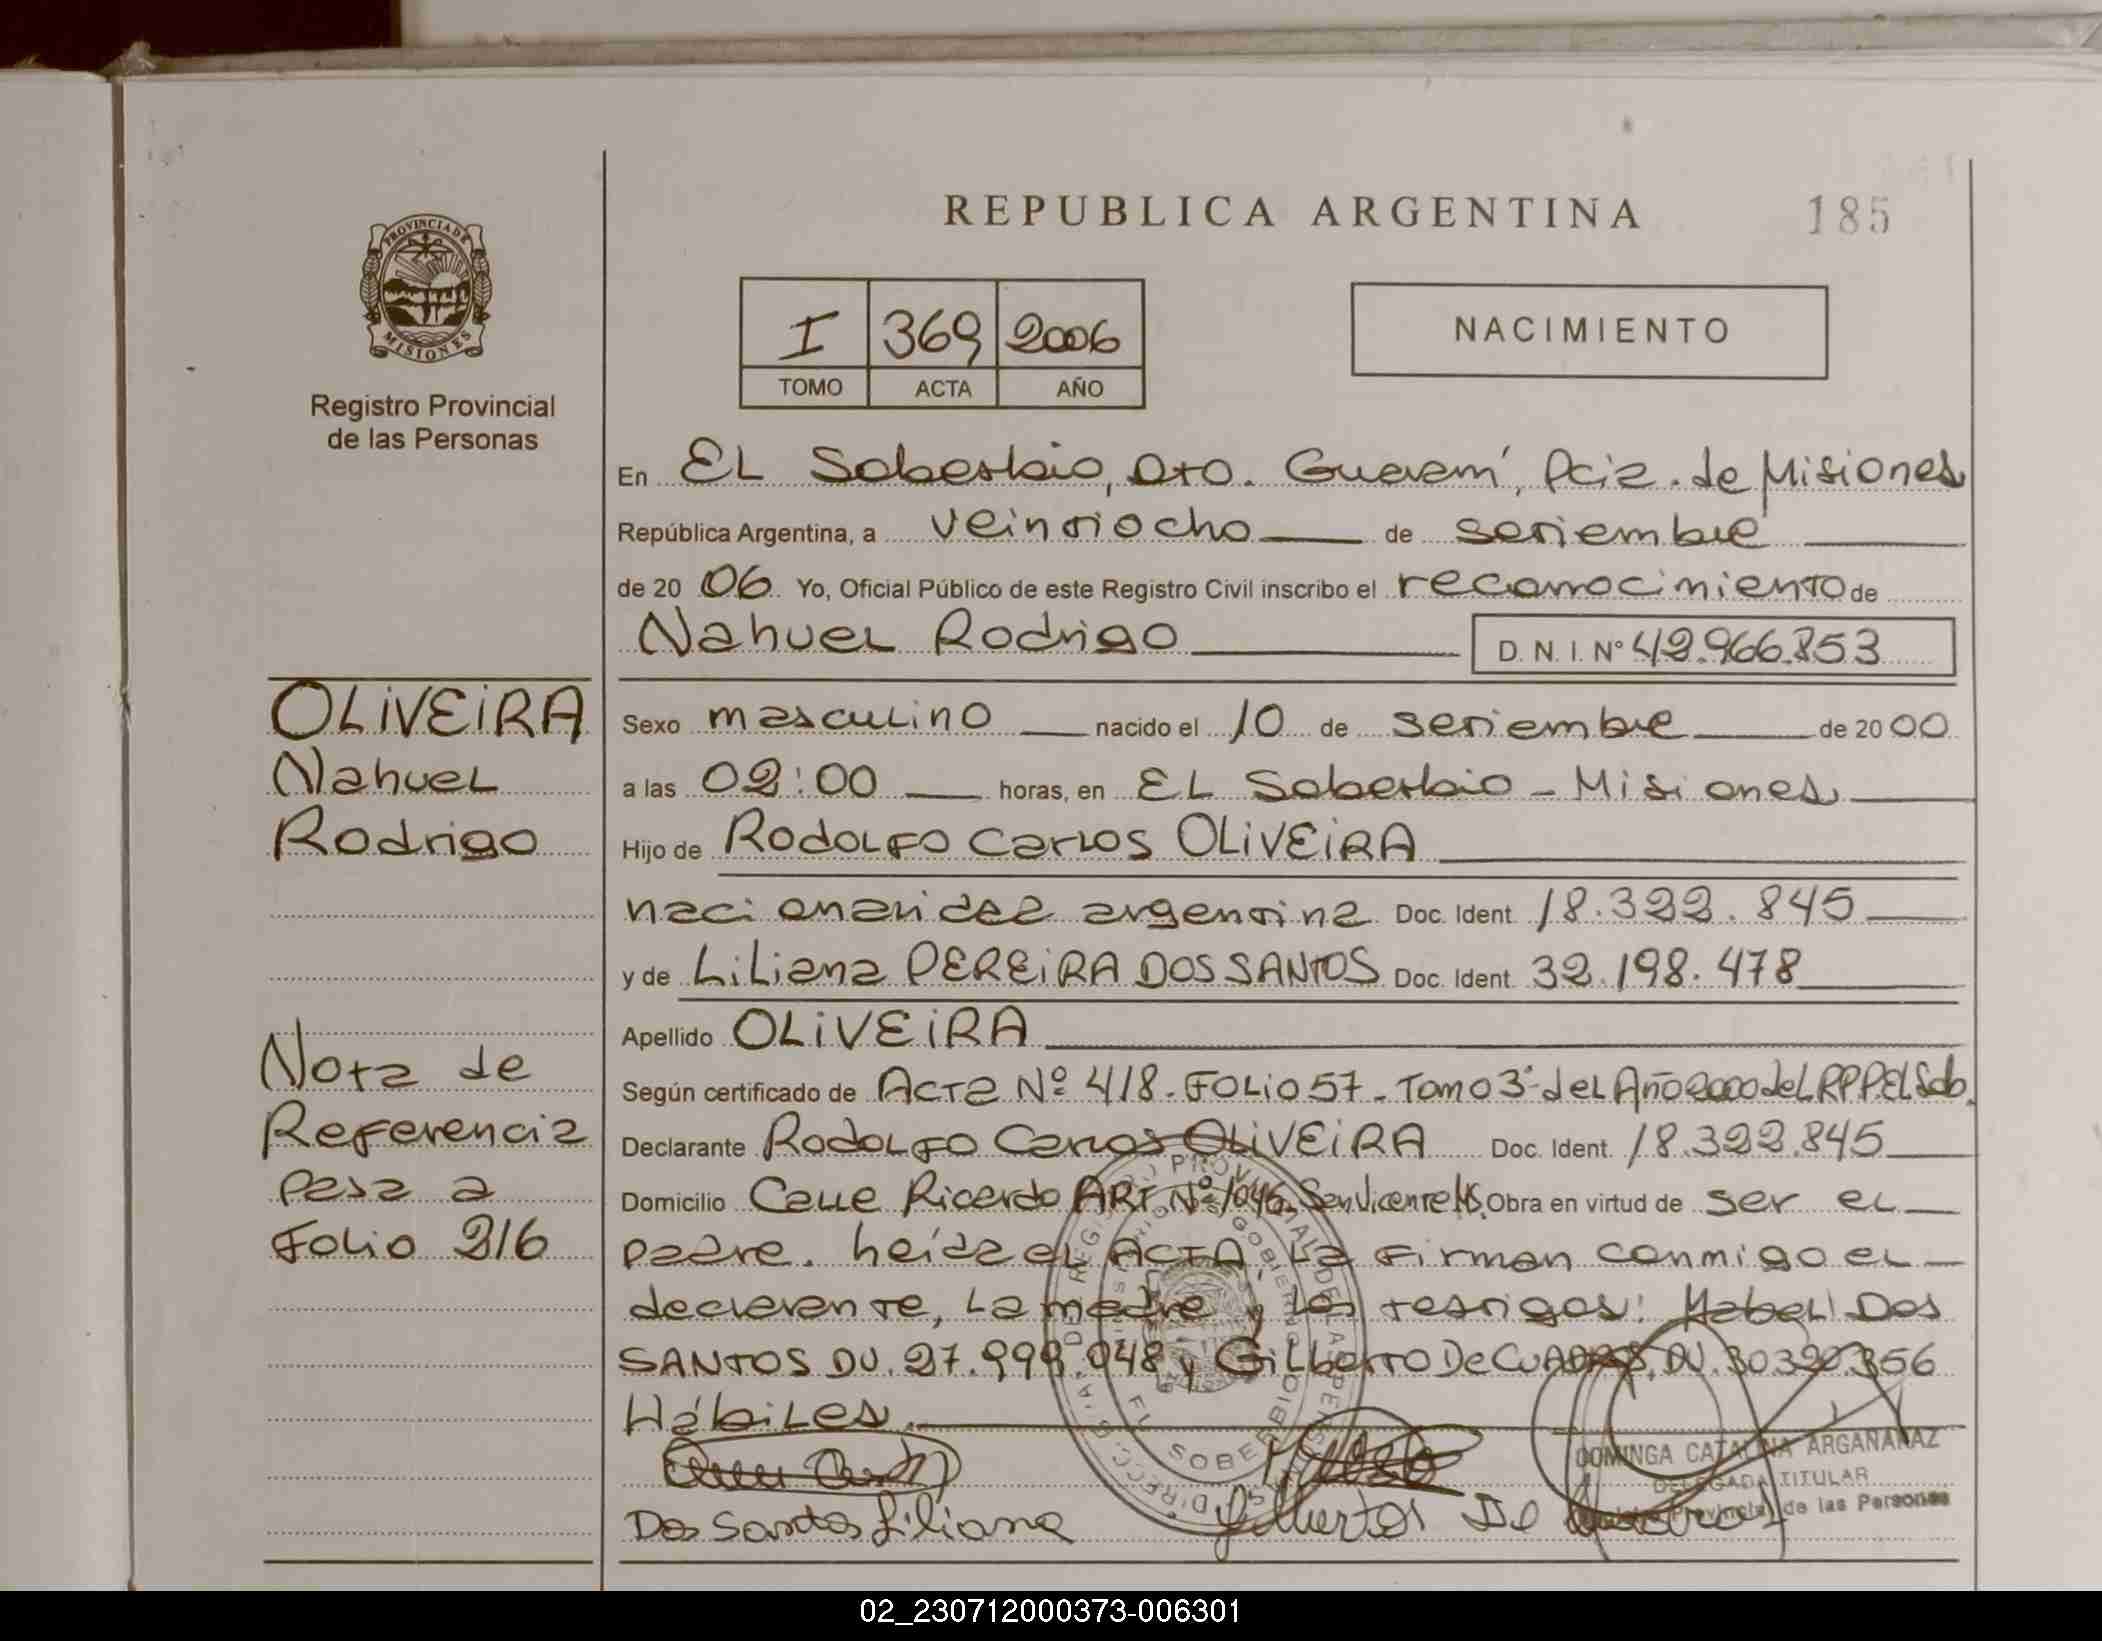 REPUBLICA ARGENTINA
185
PROVINCIA DE MISIONES
Registro Provincial
de las Personas
I 369 2006
TOMO ACTA AÑO
NACIMIENTO
En EL Soberbio, Dto. Guaraní, Pcia. de Misiones
República Argentina, a veintiocho de setiembre
de 20 06 Yo, Oficial Público de este Registro Civil inscribo el reconocimiento de
Nahuel Rodrigo D. N. I. N° 42.966.853
OLIVEIRA
Nahuel
Rodrigo
Sexo masculino nacido el 10 de setiembre de 20 00
a las 02:00 horas, en EL Soberbio - Misiones
Hijo de Rodolfo Carlos OLIVEIRA
nacionalidad argentina Doc. Ident. 18.322.845
y de Liliana PEREIRA DOS SANTOS Doc. Ident. 32.198.478
Apellido OLIVEIRA
Nota de
Referencia
pasa a
Folio 216
Según certificado de Acta Nº 418. Folio 57. Tomo 3º del Año 2000 del RPP.El Sob.
Declarante Rodolfo Carlos OLIVEIRA Doc. Ident. 18.322.845
Domicilio Calle Ricardo ART Nº 1046. San Vicente Ms. Obra en virtud de ser el
padre. Leída el ACTA, la firman conmigo el
declarante, la madre y los testigos: Mabel Dos
SANTOS DU. 27.999.048 y Gilberto De CUADROS, DU. 30320.356
Hábiles.
Dos Santos Liliana
Gilberto De
DOMINGA CATALINA ARGAÑARAZ
DELEGADA TITULAR
Provincial de las Personas
EL SOBERBIO
02_230712000373-006301